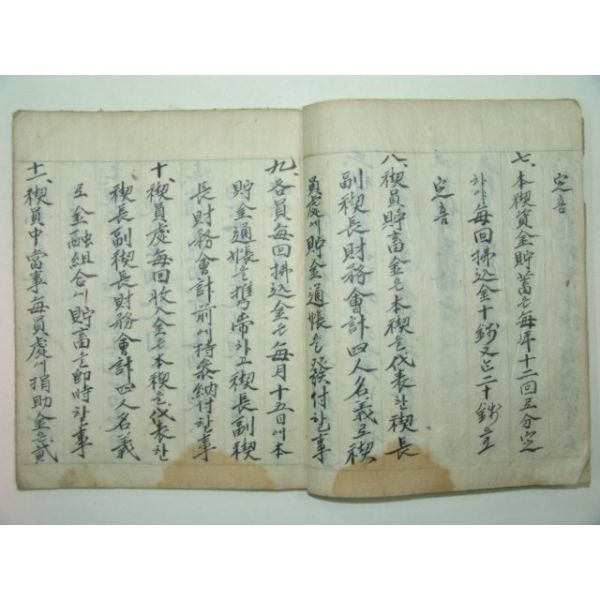 定흠
七、本禊資金貯蓄은每年十二回로分定
하야每回拂込金十錢又는二十錢으로
定흠
八、禊員貯畜金은本禊을代表한禊長
副禊長財務會計四人名義로禊
員處에貯金通帳을發付한事
九、各員每回拂込金은每月十五日에本
貯金通帳을携帶하고禊長副禊
長財務會計前에持參納付한事
十、禊員處每回收入金은本禊을代表한
禊長副禊長財務會計四人名義
로金融組合에貯畜을即時한事
十一、禊員中當事每員處에捐助金을貳